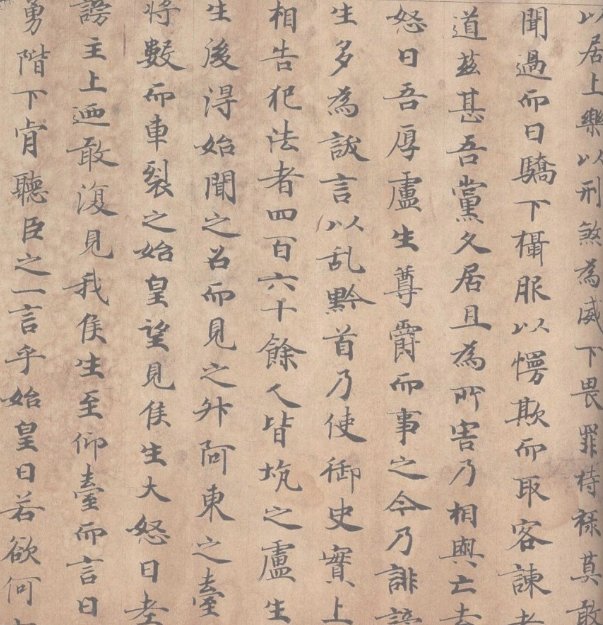 以居上樂以刑煞為威下畏罪持祿莫敢
聞過而日驕下欇服以慢欺而取容諫者
道茲甚吾黨久居且為所害乃相與亡去
怒曰吾厚盧生尊爵而事之今乃誹謗
生多為訞言以乱黔首乃使御史實上
相告犯法者四百六十餘人皆坑之盧生
生後淂始聞之召而見之升阿東之臺
將數而車裂之始皇望見侯生大怒曰老
謗主上迺敢復見我侯生至仰臺而言曰
勇階下肯聽臣之一言乎始皇曰若欲何